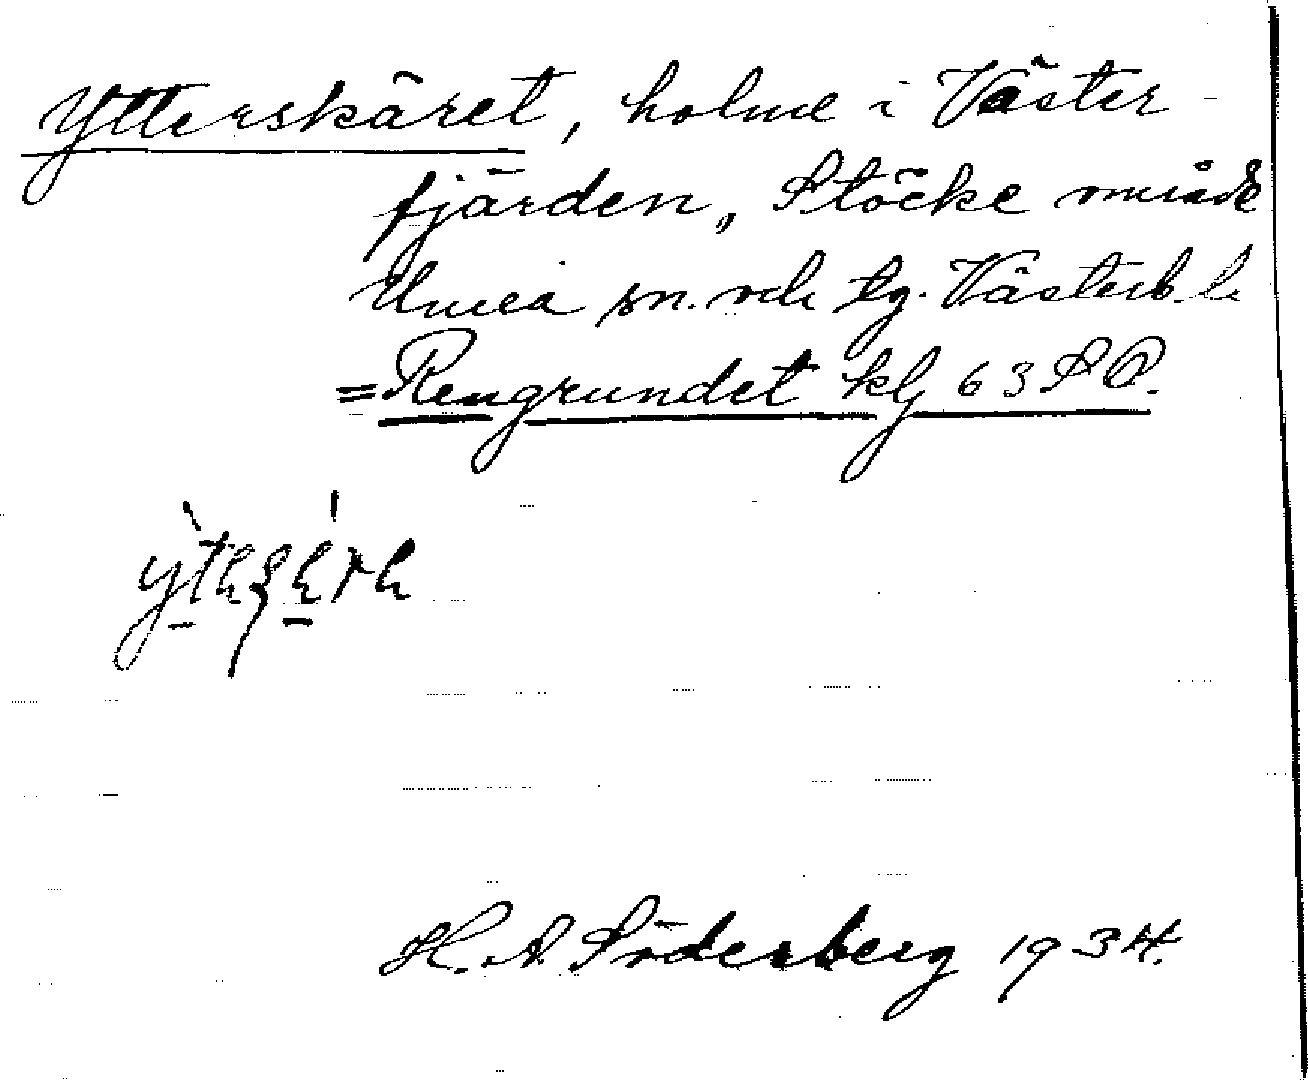 Ytterskäret, holme i Väster-
fjärden, Stöcke
Umeå sn. och tg. Västerb. l.
= Rengrundet kbl 63 SO.
H. A. Söderberg 1934.